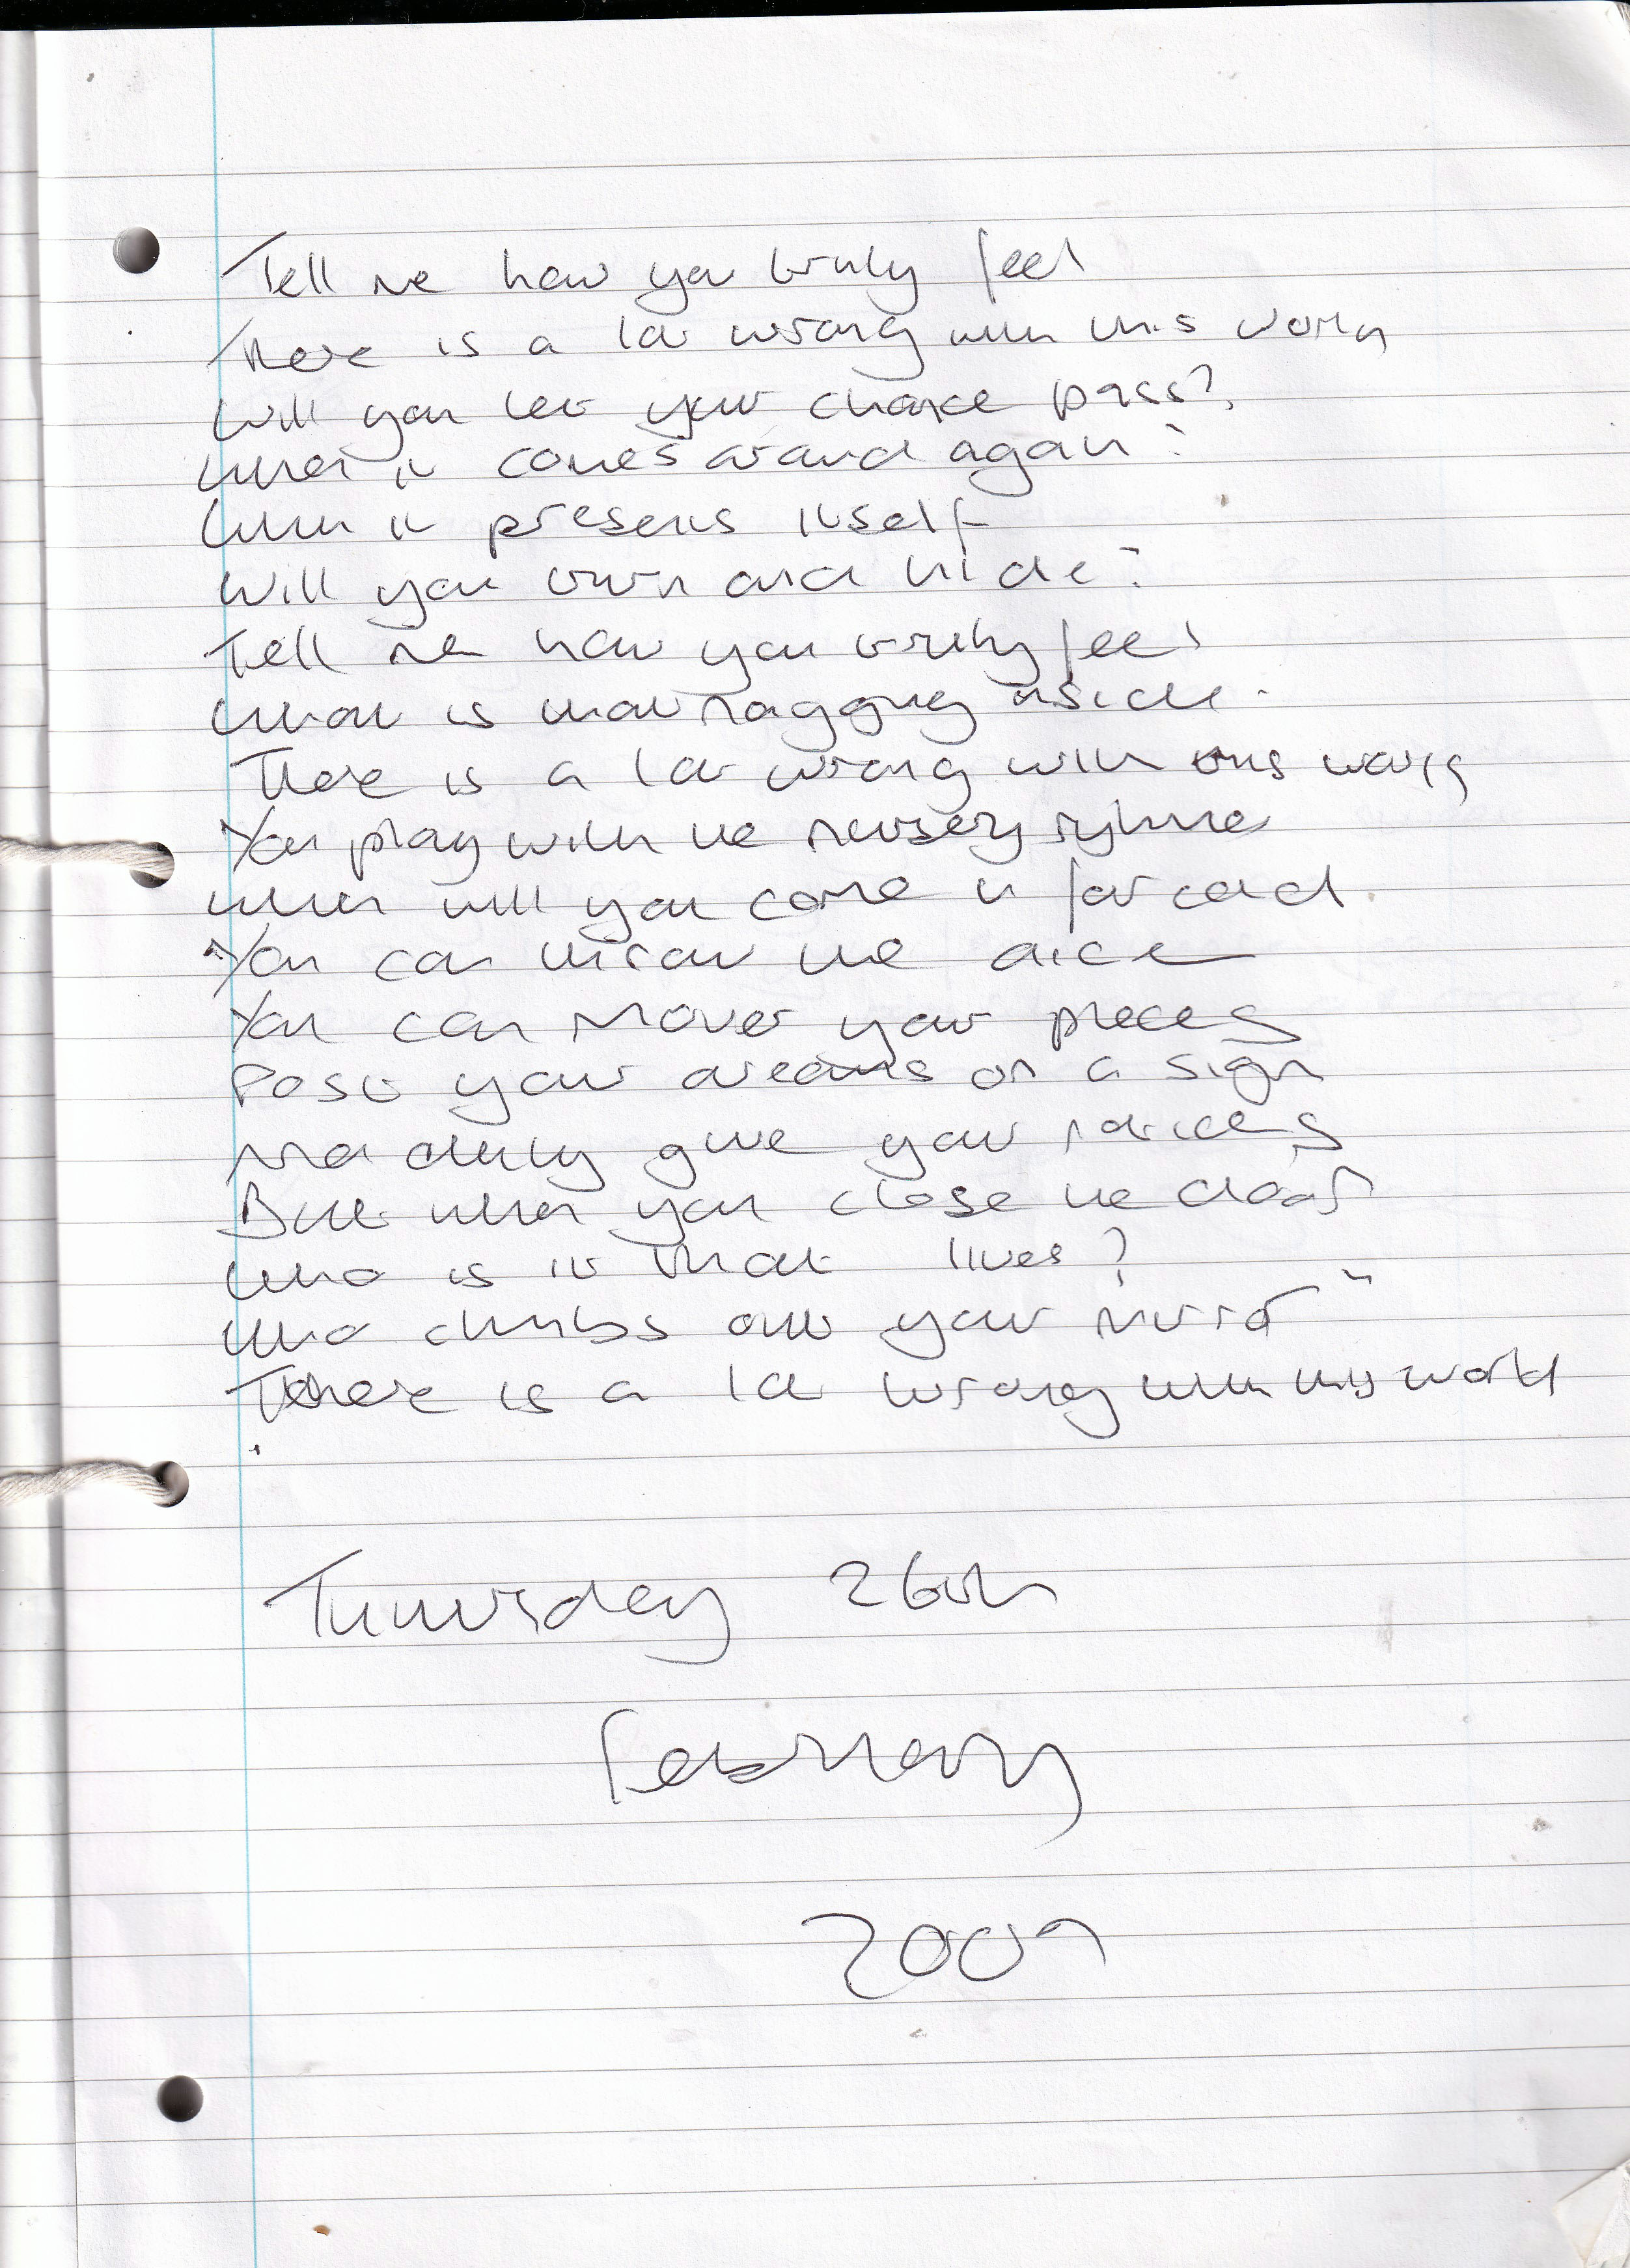 Tell me how you truly feel
There is a lot wrong with this world
Will you let your chance pass?
When it comes around again?
When it presents itself
Will you turn and hide?
Tell me how you truly feel
What is that nagging inside.
There is a lot wrong with this world
You play with the nursery ryhme
when will you come in for cold
You can throw the dice
You can move your pieces
Post your dreams on a sign
give your
But when you close the door
Who is it that lives?
Who climbs out your mirror
There is a lot wrong with this world
Thursday 26th
February
2009